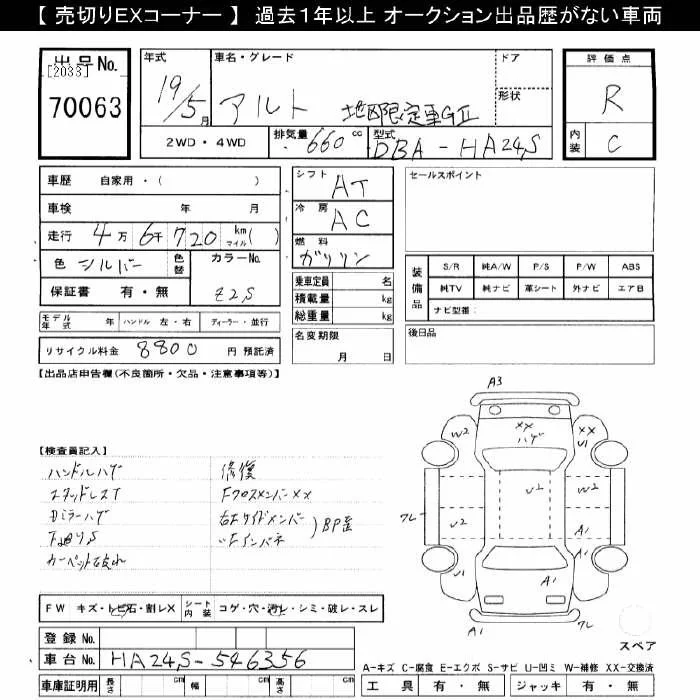 【 売切りEXコーナー 】 過去１年以上 オークション出品歴がない車両
出品No.
[2033]
70063
年式
19/5月
車名・グレード
アルト 地区限定車GⅡ
ドア
形状
2WD・4WD
排気量 660 cc
型式 DBA-HA24S
評価点
R
内装 C
車歴 自家用・( )
車検 年 月
走行 4万 6千 720 km マイル ( )
色 シルバー 色替
カラーNo.
Z2S
保証書 有・無
シフト AT
冷房 AC
燃料 ガソリン
乗車定員 名
積載量 kg
総重量 kg
セールスポイント
装備品
S/R 純A/W P/S P/W ABS
純TV 純ナビ 革シート 外ナビ エアB
ナビ型番：
モデル年式 年 ハンドル 左・右 ディーラー・並行
リサイクル料金 8800 円 預託済
名変期限
月 日
後日品
【出品店申告欄(不良箇所・欠品・注意事項等)】
【検査員記入】
ハンドルハゲ
スタッドレスT
Dミラーハゲ
カーペット汚れ
修復
FクロスメンバーXX
右Fサイドメンバー
〃Fインパネ
BP歪
A3
W2
XX
ハゲ
XX
U1
U2
W2
W2
フレ
A1
U1
A1
A1
A1
フレ
スペア
FW キズ・トビ石・割レX
シート内装 コゲ・穴・汚レ・シミ・破レ・スレ
登録No.
車台No. HA24S-546356
車庫証明用 長さ cm 幅 cm 高さ cm
A-キズ C-腐食 E-エクボ S-サビ U-凹ミ W-補修 XX-交換済
工具 有・無 ジャッキ 有・無